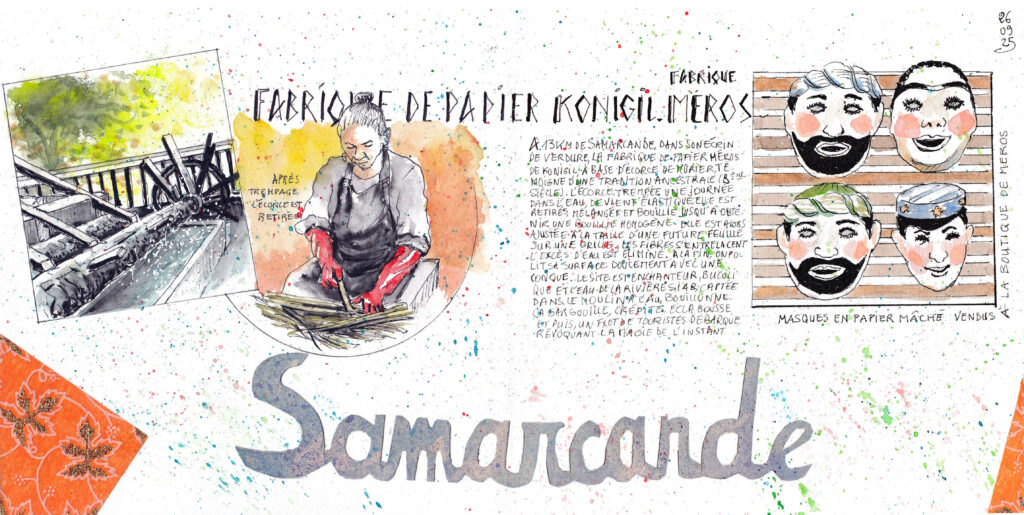 26
09
25
FABRIQUE
FABRIQUE DE PAPIER KONIGIL. MEROS
APRÈS
TREMPAGE
L'ÉCORCE EST
RETIRÉE
A 13 KM DE SAMARCANDE, DANS SON ÉCRIN
DE VERDURE, LA FABRIQUE DE PAPIER MÉROS
DE KONIGIL À BASE D'ÉCORCE DE MÛRIER, TÉ
MOIGNE D'UNE TRADITION ANCESTRALE (8ÈME
SIÈCLE). L'ÉCORCE, TREMPÉE UNE JOURNÉE
DANS L'EAU, DEVIENT ÉLASTIQUE. ELLE EST
RETIRÉE MÉLANGÉE ET BOUILLIE JUSQU'À OBTE
NIR UNE BOUILLIE HOMOGÈNE. ELLE EST ALORS
AJUSTÉE À LA TAILLE D'UNE FUTURE FEUILLE
SUR UNE GRILLE. LES FIBRES S'ENTRELACENT
L'EXCÈS D'EAU EST ÉLIMINÉ. À LA FIN ON PO
LIT SA SURFACE DOUCEMENT AVEC UNE
CONQUE. LE SITE EST ENCHANTEUR, BUCOLI
QUE ET L'EAU DE LA RIVIÈRE SIAB, CAPTÉE
DANS LE MOULIN À EAU, BOUILLONNE.
ÇA GARGOUILLE, CRÉPITE, ÉCLABOUSSE
ET PUIS, UN FLOT DE TOURISTES DÉBARQUE
RÉVOQUANT LA MAGIE DE L'INSTANT
MASQUES EN PAPIER MÂCHÉ VENDUS
A LA BOUTIQUE DE MEROS
Samarcande